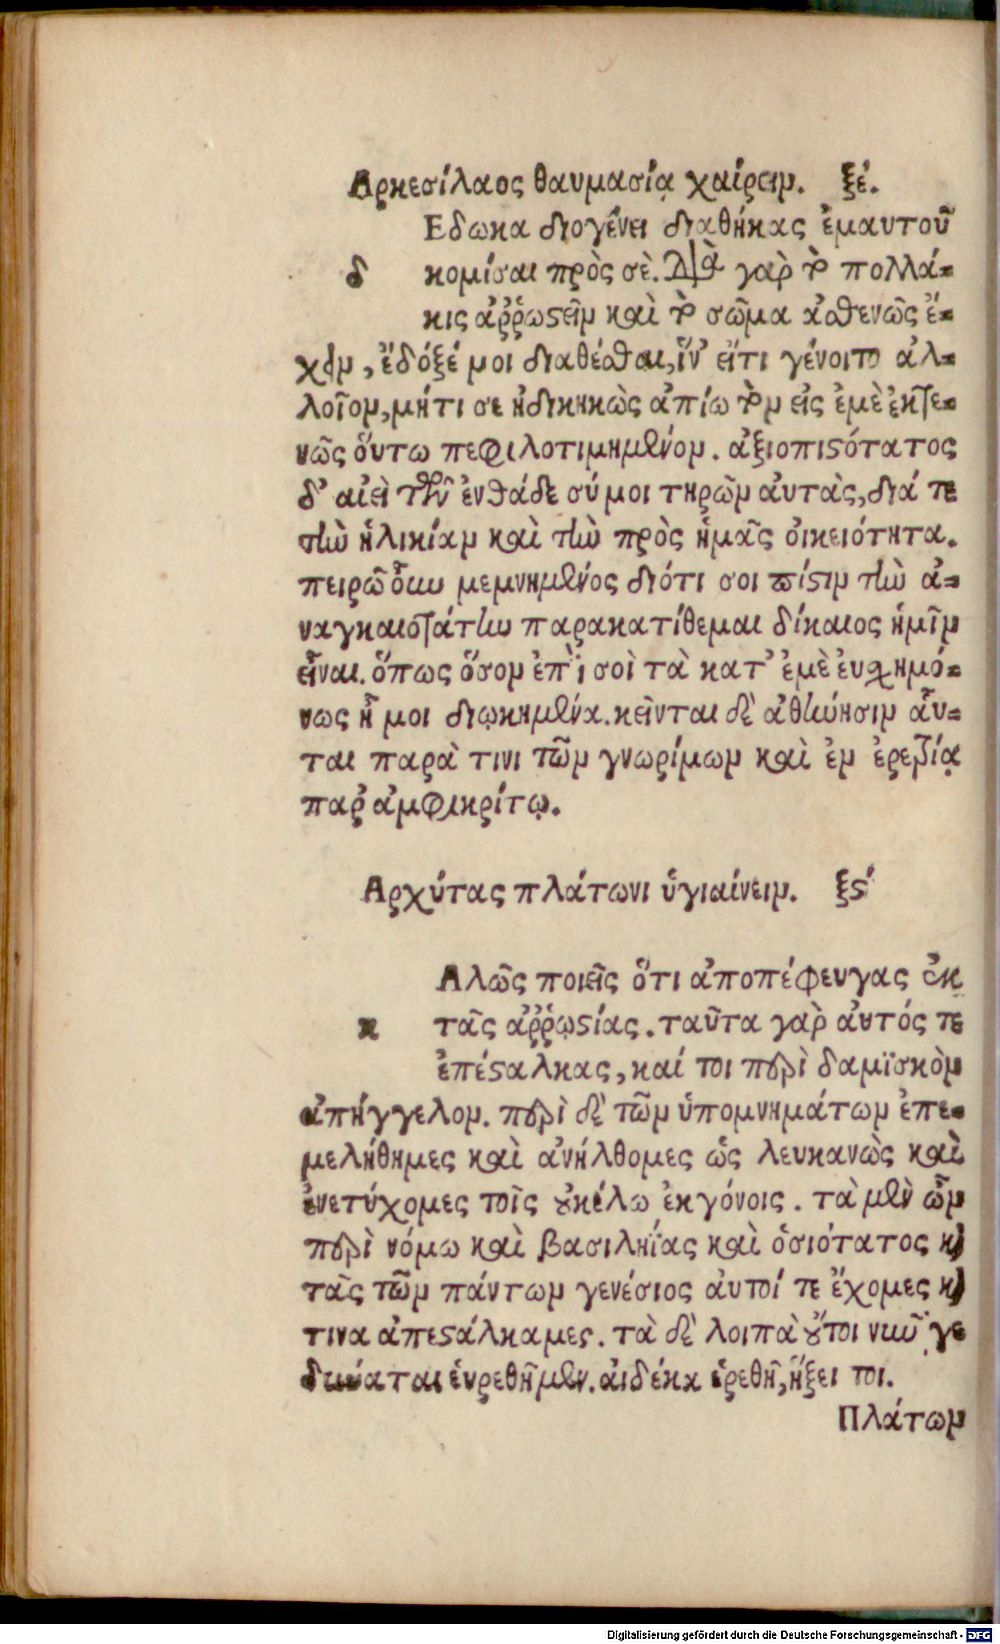 Αρκεσίλαος θαυμασίᾳ χαίρειν. ξέ.
Εδωκα διογένει διαθήκας ἐμαυτοῦ
δ κομίσαι πρὸς σὲ. Διὰ γαρ τὸ πολλά-
κις ἀῤῥωστεῖν καὶ τὸ σῶμα ἀσθενῶς ἔ-
χειν, ἔδοξέ μοι διαθέσθαι, ἵν᾽ εἴτι γένοιτο ἀλ-
λοῖον, μήτι σε ἠδικηκὼς ἀπίω τὸν εἰς ἐμὲ ἐκτε-
νῶς ὅυτω πεφιλοτιμημένον. ἀξιοπιστότατος
δ᾽ αἰεὶ τῶν ἐνθάδε σύ μοι τηρῶν ἀυτὰς, διά τε
τὴν ἡλικίαν καὶ τὴν πρὸς ἡμᾶς ὀικειότητα.
πειρῶ οὖν μεμνημένος διότι σοι πίστιν τὴν ἀ-
ναγκαιοτάτην παρακατίθεμαι δίκαιος ἡμῖν
εἶναι. ὅπως ὅσον ἐπὶ σοὶ τὰ κατ᾽ ἐμὲ ἐυσχημό-
νως ἦ μοι διῳκημένα. κεῖνται δὲ ἀθήνησιν αὗ-
ται παρὰ τινι τῶν γνωρίμων καὶ ἐν ἐρετρίᾳ
παρ᾽ ἀμφικρίτῳ.
Αρχύτας πλάτωνι ὑγιαίνειν. ξϛ΄
Αλῶς ποιεῖς ὅτι ἀποπέφευγας ἐκ
κ τᾶς ἀῤῥωστίας. ταῦτα γὰρ ἀυτός τε
ἐπέσταλκας, καί τοι περὶ δαμϊσκὸν
ἀπήγγελον. περὶ δὲ τῶν ὑπομνημάτων ἐπε-
μελήθημες καὶ ἀνήλθομες ὡς λευκανὼς καὶ
ἐνετύχομες τοῖς ὀυκέλω ἐκγόνοις. τὰ μὲν ὦν
περὶ νόμω καὶ βασιληΐας καὶ ὁσιότατος καὶ
τᾶς τῶν πάντων γενέσιος ἀυτοί τε ἔχομες καὶ
τινα ἀπεστάλκαμες. τὰ δὲ λοιπὰ ὄυτοι νῦν γε
δύναται ἑυρεθῆμεν. ἀιδέκα ἑρεθῆ, ἥξει τοι.
Πλάτων
Digitalisierung gefördert durch die Deutsche Forschungsgemeinschaft - DFG